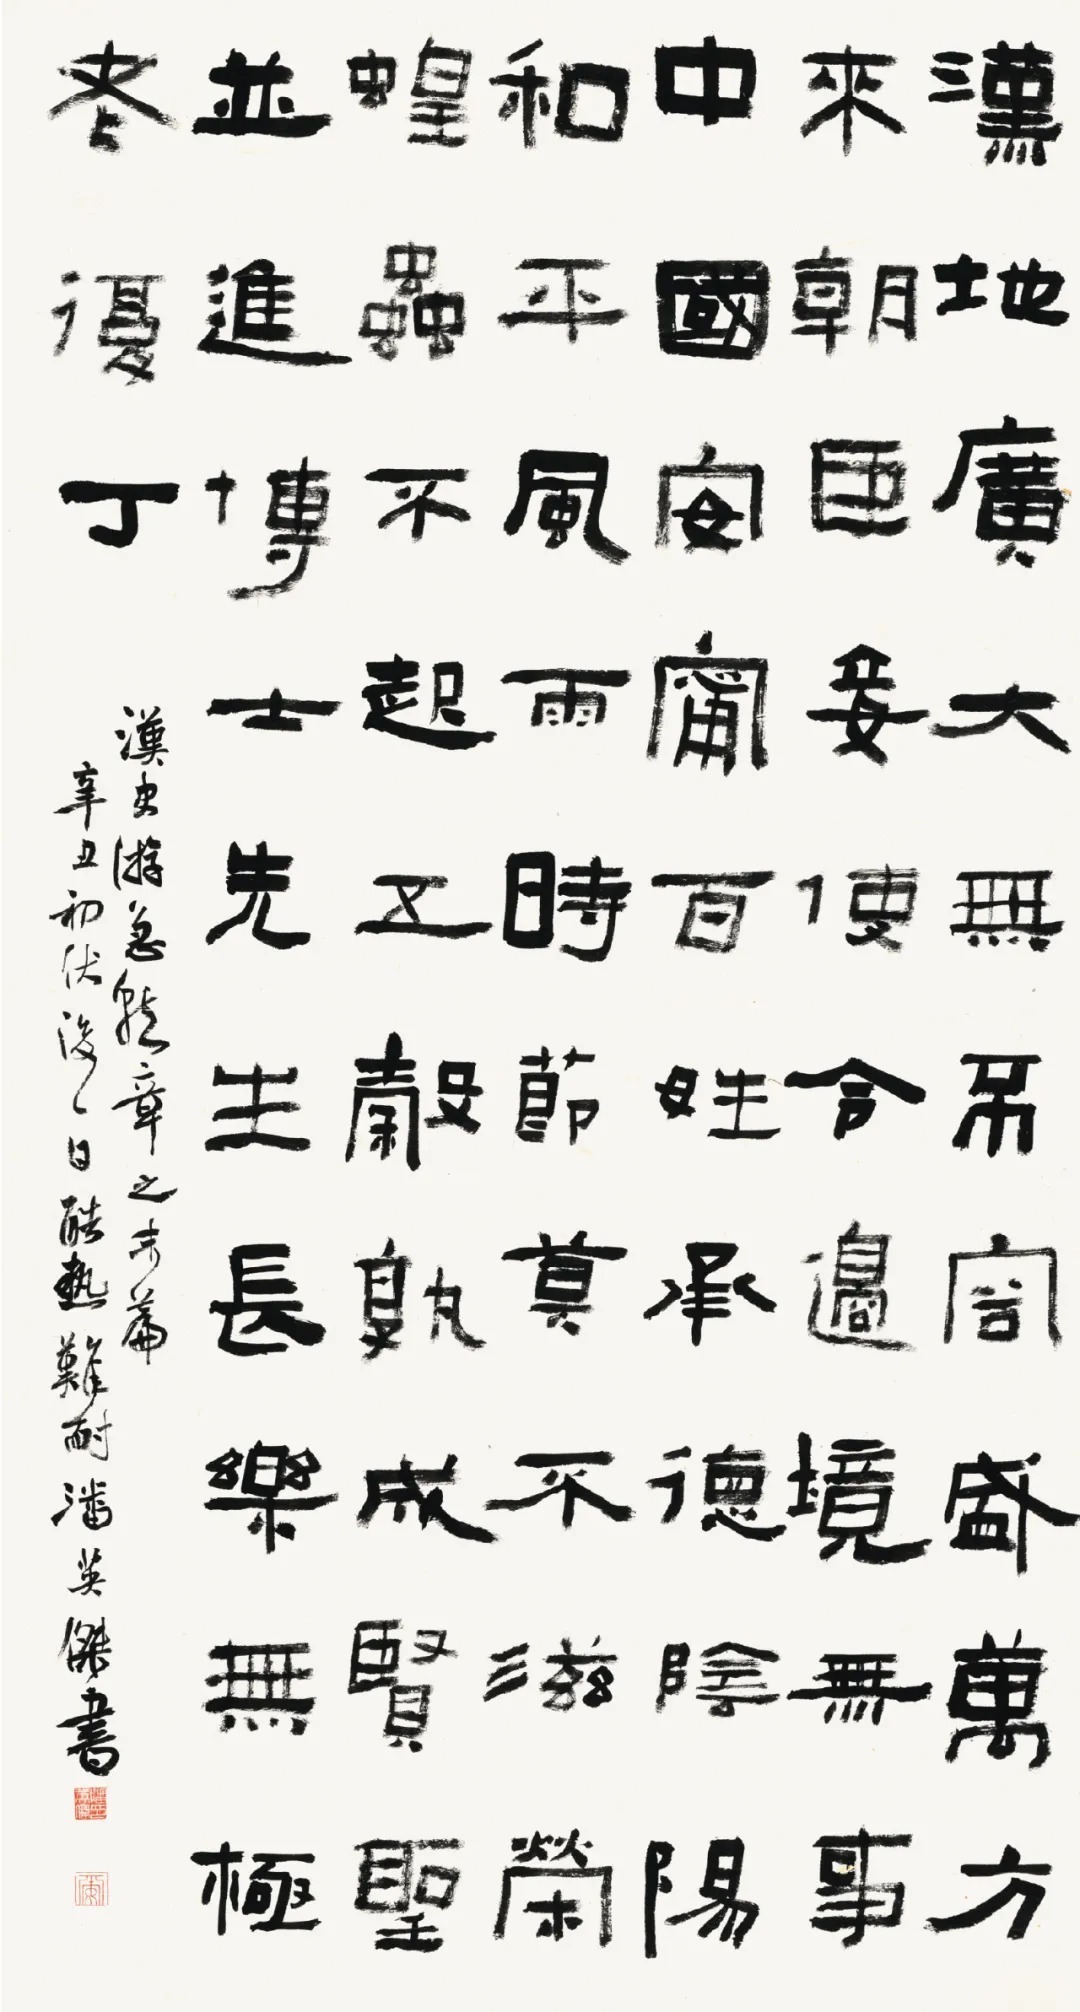 漢地廣大無不容盛萬方
來朝臣妾使令邊境無事
中國安甯百姓承德陰陽
和平風雨時節莫不滋榮
蝗蟲不起五穀孰成賢聖
並進博士先生長樂無極
老復丁
漢史游急就章之末篇
辛丑初伏後一日酷熱難耐潘英傑書